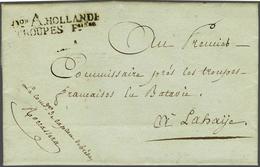 Don A. HOLLANDE
TROUPES Fses
Au Premier
Commissaire près les troupes
françaises en Batavie
à Lahaÿe